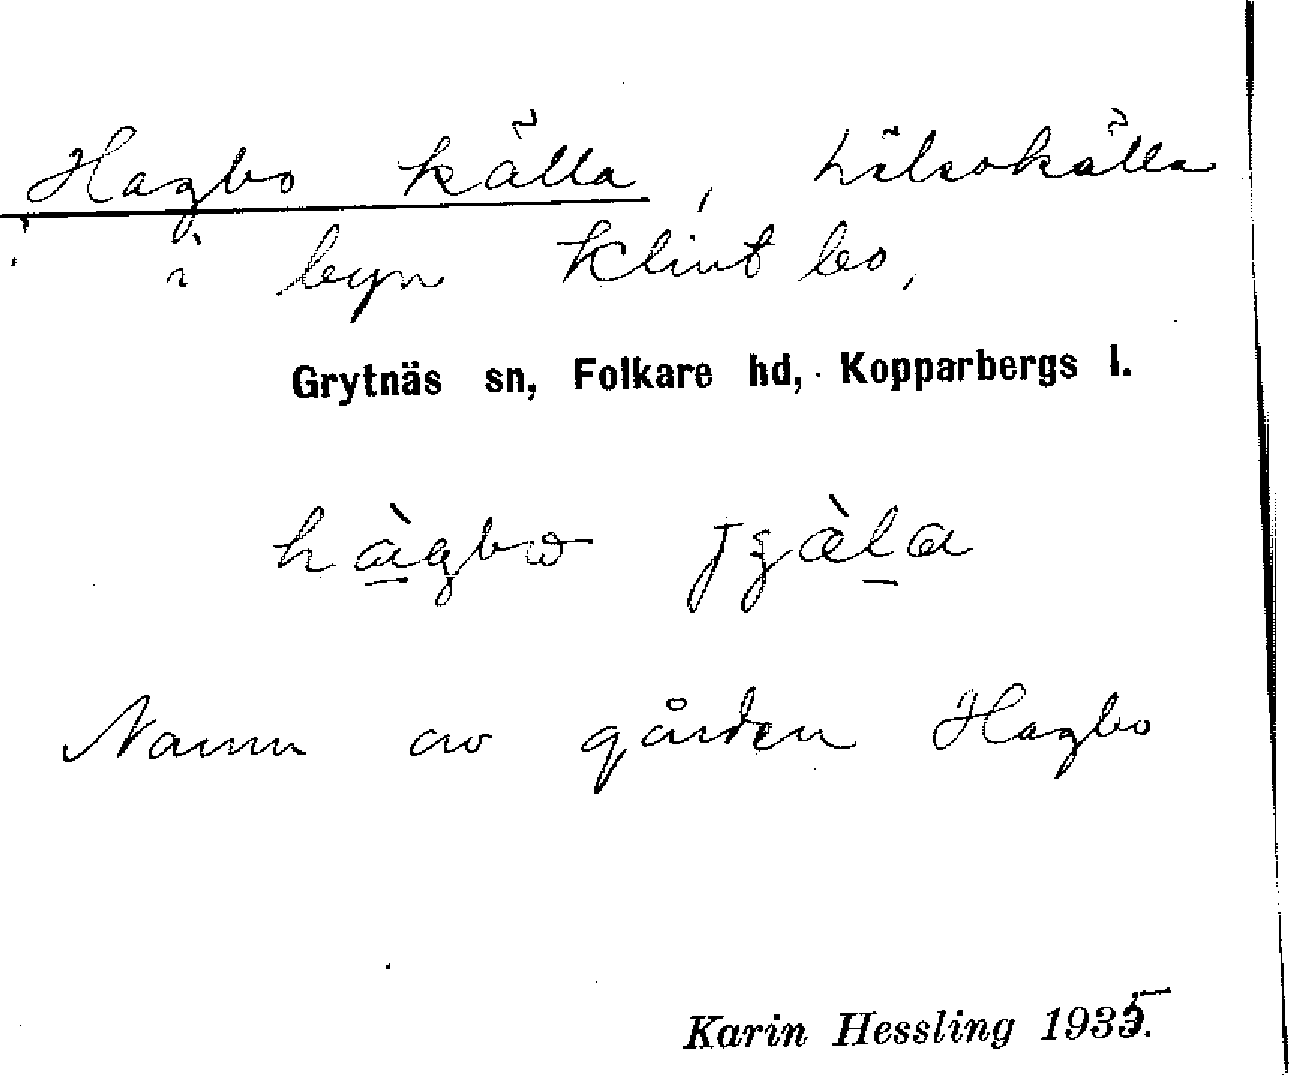 Hagbo källa, hälsokälla
i byn Klintbo,
Grytnäs sn, Folkare hd, Kopparbergs l.
hàgbo
Namn av gården Hagbo
Karin Hessling 1935.